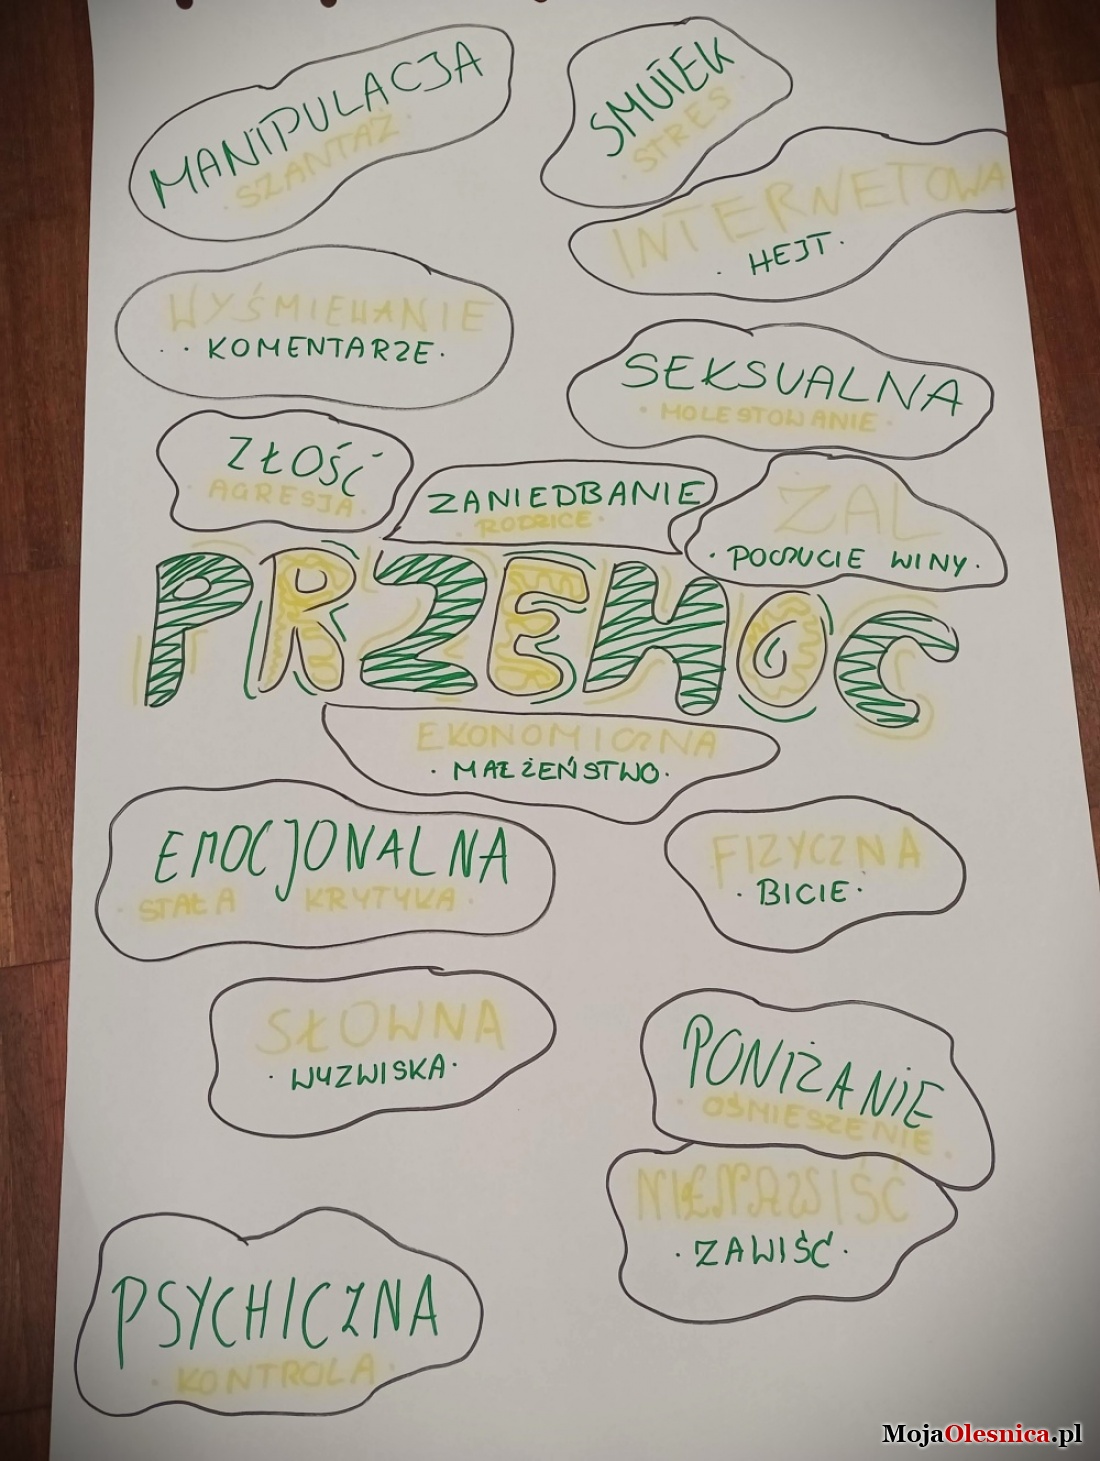 MANIPULACJA
SZANTAŻ
SMUTEK
STRES
INTERNETOWA
HEJT
WYŚMIEWANIE
KOMENTARZE
SEKSUALNA
MOLESTOWANIE
ZŁOŚĆ
AGRESJA
ZANIEDBANIE
RODZICE
ŻAL
POCZUCIE WINY
PRZEMOC
EKONOMICZNA
MAŁŻEŃSTWO
EMOCJONALNA
STAŁA KRYTYKA
FIZYCZNA
BICIE
SŁOWNA
WYZWISKA
PONIŻANIE
OŚMIESZENIE
NIENAWIŚĆ
ZAWIŚĆ
PSYCHICZNA
KONTROLA
MojaOlesnica.pl